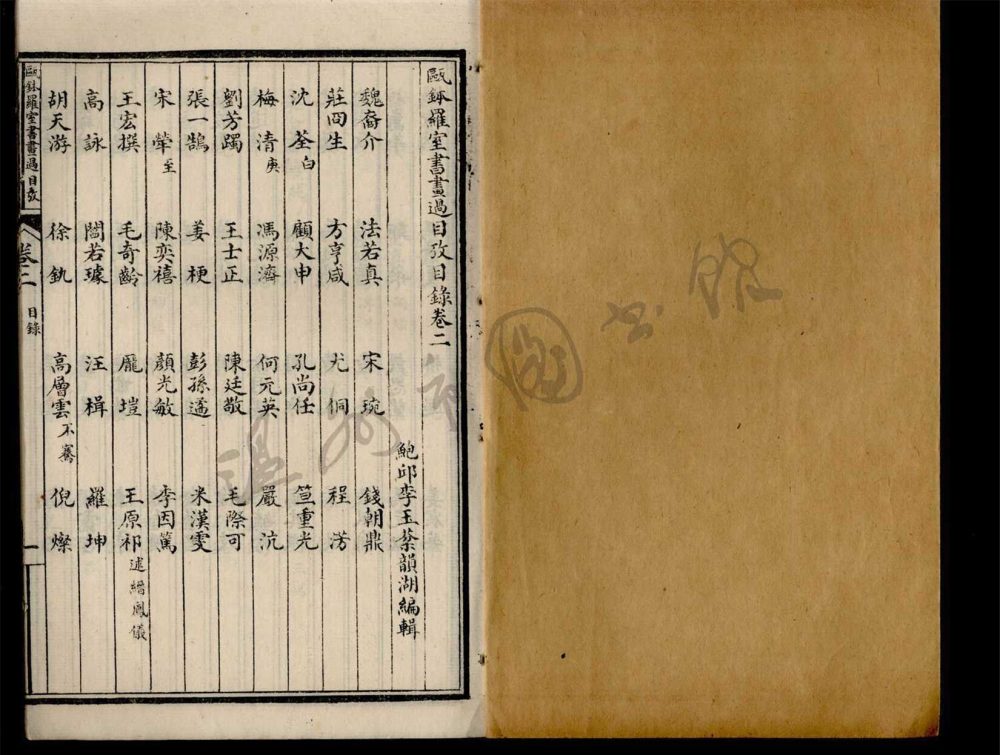 甌鉢羅室書畫過目攷目錄卷二
鮑邱李玉棻韻湖編輯
魏裔介 法若真 宋琬 錢朝鼎
莊冏生 方亨咸 尤侗 程涝
沈荃白 顧大申 孔尚任 笪重光
梅清庚 馮源濟 何元英 嚴沆
劉芳躅 王士正 陳廷敬 毛際可
張一鵠 姜梗 彭孫遹 米漢雯
宋犖至 陳奕禧 顏光敏 李因篤
王宏撰 毛奇齡 龐塏 王原祁述縉鳳儀
高詠 閻若璩 汪楫 羅坤
胡天游 徐釚 高層雲不騫 倪燦
甌鉢羅室書畫過目攷
卷二
目錄
一
溫州市圖書館